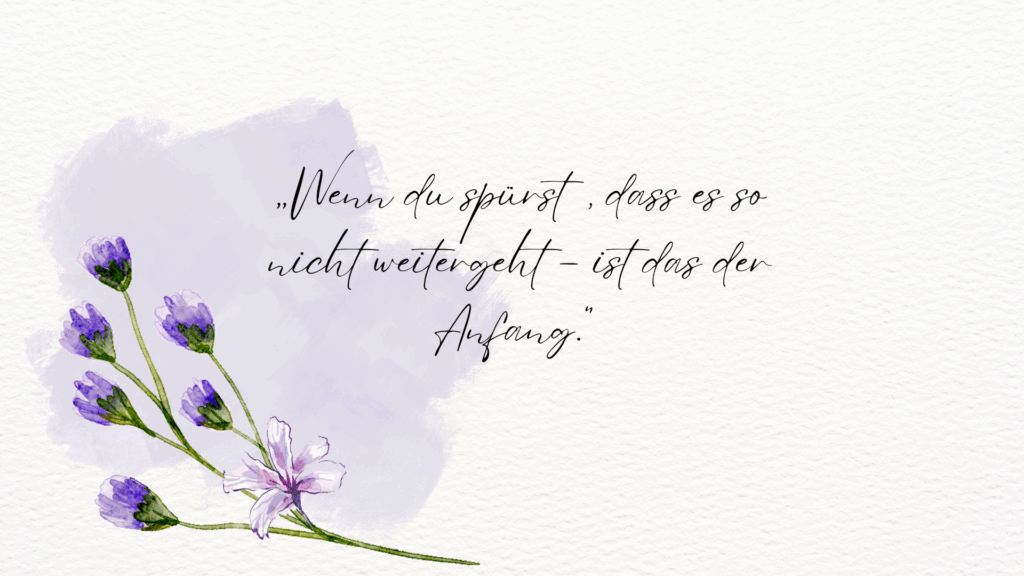 „Wenn du spürst , dass es so
nicht weitergeht – ist das der
Anfang."